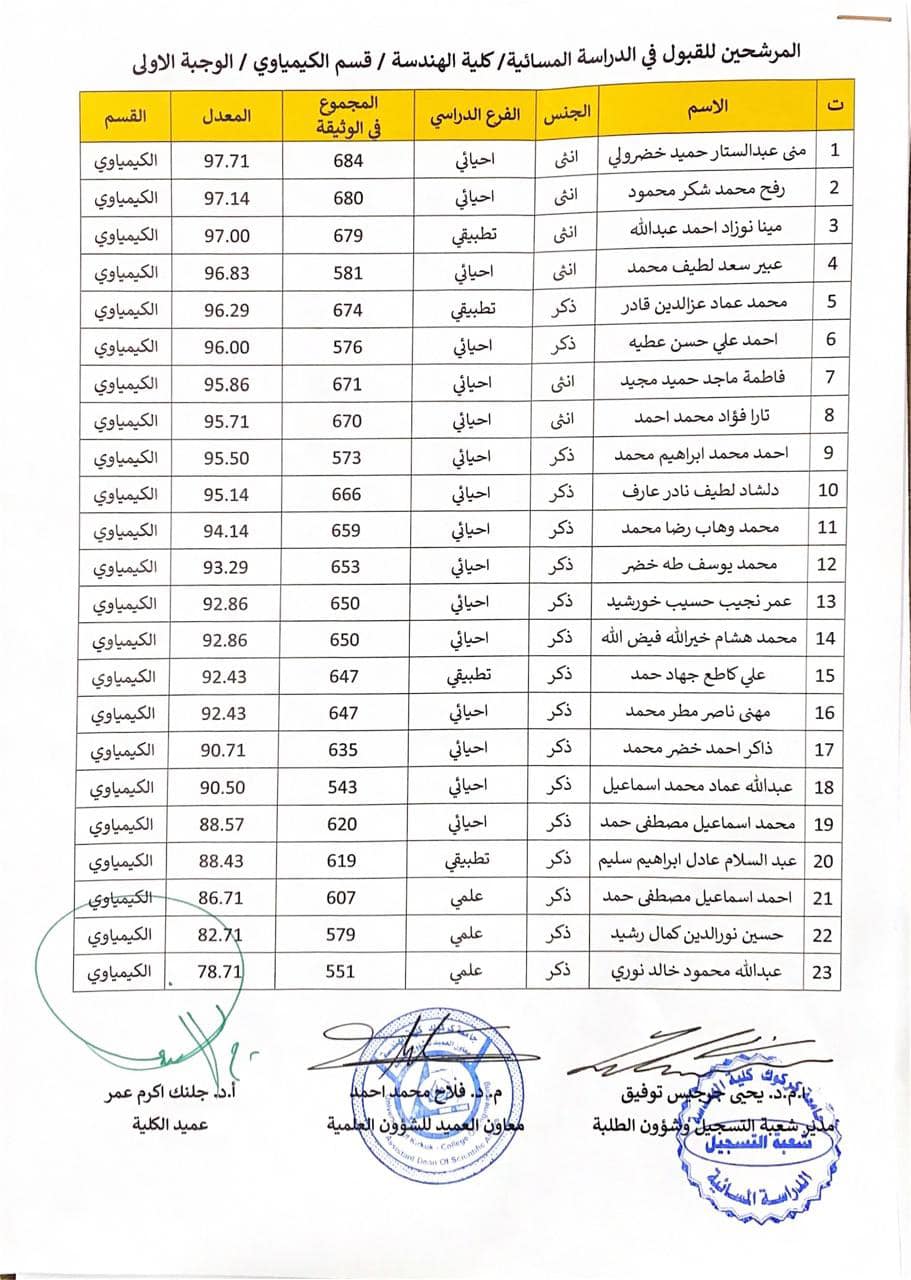 المرشحين للقبول في الدراسة المسائية/ كلية الهندسة / قسم الكيمياوي / الوجبة الاولى
ت الاسم الجنس الفرع الدراسي المجموع في الوثيقة المعدل القسم
1 منى عبدالستار حميد خضرولي انثى احيائي 684 97.71 الكيمياوي
2 رفح محمد شكر محمود انثى احيائي 680 97.14 الكيمياوي
3 مينا نوزاد احمد عبدالله انثى تطبيقي 679 97.00 الكيمياوي
4 عبير سعد لطيف محمد انثى احيائي 581 96.83 الكيمياوي
5 محمد عماد عزالدين قادر ذكر تطبيقي 674 96.29 الكيمياوي
6 احمد علي حسن عطيه ذكر احيائي 576 96.00 الكيمياوي
7 فاطمة ماجد حميد مجيد انثى احيائي 671 95.86 الكيمياوي
8 تارا فؤاد محمد احمد انثى احيائي 670 95.71 الكيمياوي
9 احمد محمد ابراهيم محمد ذكر احيائي 573 95.50 الكيمياوي
10 دلشاد لطيف نادر عارف ذكر احيائي 666 95.14 الكيمياوي
11 محمد وهاب رضا محمد ذكر احيائي 659 94.14 الكيمياوي
12 محمد يوسف طه خضر ذكر احيائي 653 93.29 الكيمياوي
13 عمر نجيب حسيب خورشيد ذكر احيائي 650 92.86 الكيمياوي
14 محمد هشام خيرالله فيض الله ذكر احيائي 650 92.86 الكيمياوي
15 علي كاطع جهاد حمد ذكر تطبيقي 647 92.43 الكيمياوي
16 مهنى ناصر مطر محمد ذكر احيائي 647 92.43 الكيمياوي
17 ذاكر احمد خضر محمد ذكر احيائي 635 90.71 الكيمياوي
18 عبدالله عماد محمد اسماعيل ذكر احيائي 543 90.50 الكيمياوي
19 محمد اسماعيل مصطفى حمد ذكر احيائي 620 88.57 الكيمياوي
20 عبد السلام عادل ابراهيم سليم ذكر تطبيقي 619 88.43 الكيمياوي
21 احمد اسماعيل مصطفى حمد ذكر علمي 607 86.71 الكيمياوي
22 حسين نورالدين كمال رشيد ذكر علمي 579 82.71 الكيمياوي
23 عبدالله محمود خالد نوري ذكر علمي 551 78.71 الكيمياوي
ا.م.د. يحيى جرجيس توفيق م.د. فلاح محمد احمد أ.د. جلنك اكرم عمر
مدير شعبة التسجيل وشؤون الطلبة معاون العميد للشؤون العلمية عميد الكلية
جامعة كركوك كلية الهندسة
شعبة التسجيل
الدراسة المسائية
Kirkuk - College
Assistant Dean Of Scientific